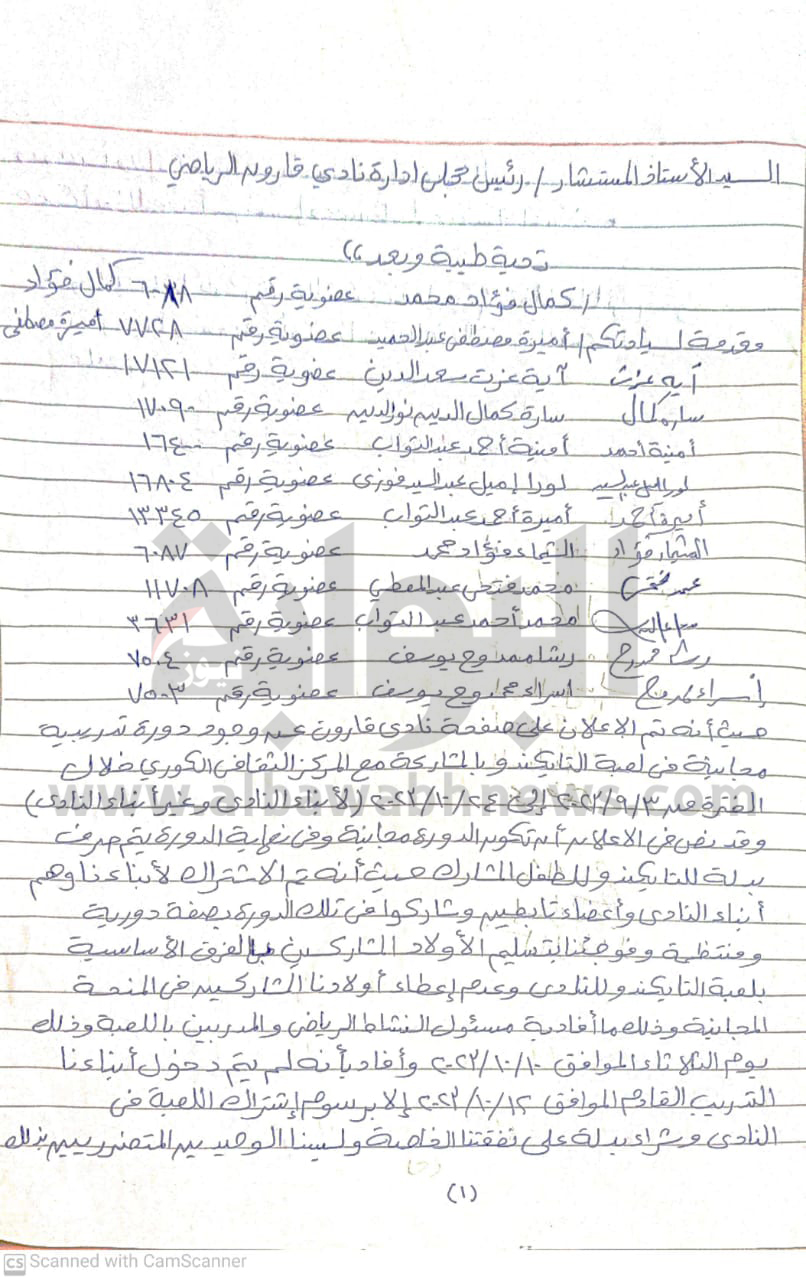 السيد الأستاذ المستشار / رئيس مجلس ادارة نادي قارون الرياضي
تحية طيبة وبعد ،،
/ كمال فؤاد محمد عضوية رقم ٦٠٨٨ كمال فؤاد
مقدمة لسيادتكم / أميرة مصطفى عبد الحميد عضوية رقم ٧٧٢٨ أميرة مصطفى
آيه عزت آية عزت سعد الدين عضوية رقم ١٧١٢١
ساره كمال سارة كمال الدين نور الدين عضوية رقم ١٧٠٩٠
أمنية احمد أمنية أحمد عبد التواب عضوية رقم ١٦٤٠٠
لورا إميل عبد السيد فوزى عضوية رقم ١٦٨٠٤
أميرة أحمد أميرة أحمد عبد التواب عضوية رقم ١٣٣٤٥
الشيماء فؤاد الشيماء فؤاد محمد عضوية رقم ٦٠٨٧
محمد فتحى عبد المعطي عضوية رقم ١١٧٠٨
محمد أحمد عبد التواب عضوية رقم ٣٦٣١
رشا ممدوح رشا ممدوح يوسف عضوية رقم ٧٥٠٤
إسراء ممدوح اسراء ممدوح يوسف عضوية رقم ٧٥٠٣
حيث أنه تم الاعلان على صفحة نادى قارون عن وجود دورة تدريبية
مجانية فى لعبة التايكندو بالمشاركة مع المركز الثقافى الكوري خلال
الفترة من ٢٠٢٣/٩/٣ إلى ٢٠٢٣/١٠/٢٤ (لأبناء النادى وغير أبناء النادى)
وقد نص فى الاعلان أن تكون الدورة مجانية وفى نهاية الدورة يتم صرف
بدلة للتايكندو للطفل المشارك حيث أنه تم الاشتراك لأبناءنا وهم
أبناء النادى وأعضاء تابعين وشاركوا فى تلك الدورة بصفة دورية
ومنتظمة وفوجئنا بتسليم الأولاد المشاركين بالفرق الأساسية
بلعبة التايكندو للنادى وعدم إعطاء أولادنا المشاركين فى المنحة
المجانية وذلك ما أفاد به مسئول النشاط الرياضى والمدربين باللعبة وذلك
يوم الثلاثاء الموافق ٢٠٢٣/١٠/١٠ وأفاد بأنه لم يتم دخول أبناءنا
التدريب القادم الموافق ٢٠٢٣/١٠/١٢ إلا برسوم إشتراك اللعبة فى
النادى وشراء بدلة على نفقتنا الخاصة ولسنا الوحيدين المتضررين بذلك
(١)
البوابة
نيوز
www.albawabhnews.com
CS Scanned with CamScanner